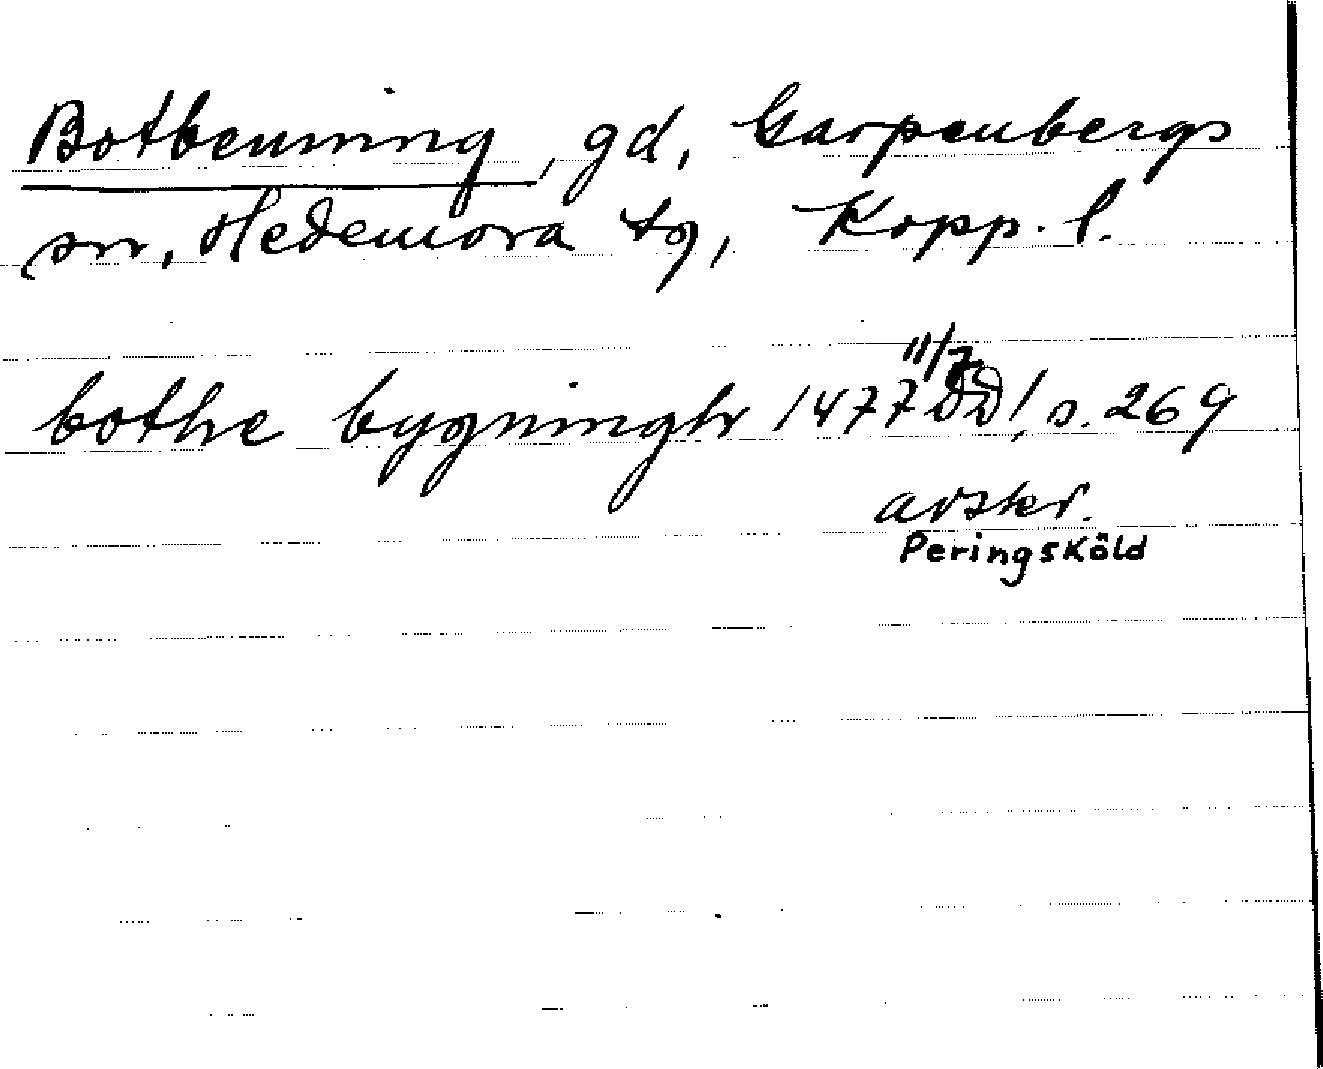 Botbenning, gd, Garpenbergs
sn, Hedemora tg, Kopp. l.
bothe bygningh 1477 11/7 DD 1, s. 269
avskr.
Peringsköld